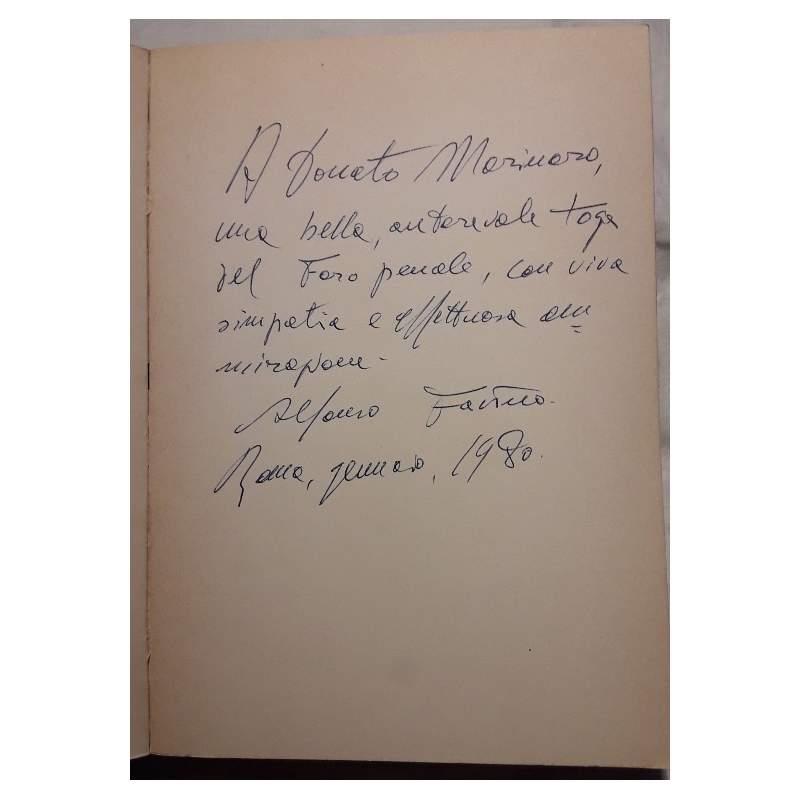 A Donato Marinaro,
una bella, autorevole toga
del Foro penale, con viva
simpatia e affettuosa am=
mirazione -
Alfonso Favino.
Roma, gennaio, 1980.